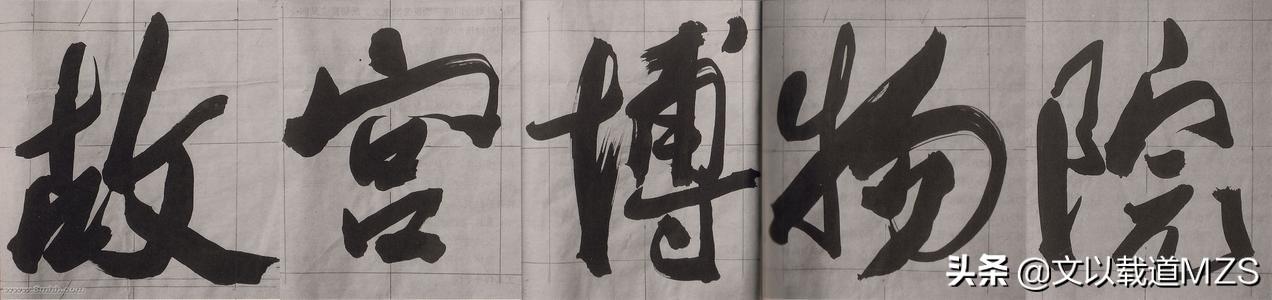 故宫博物院
头条 @文以载道MZS